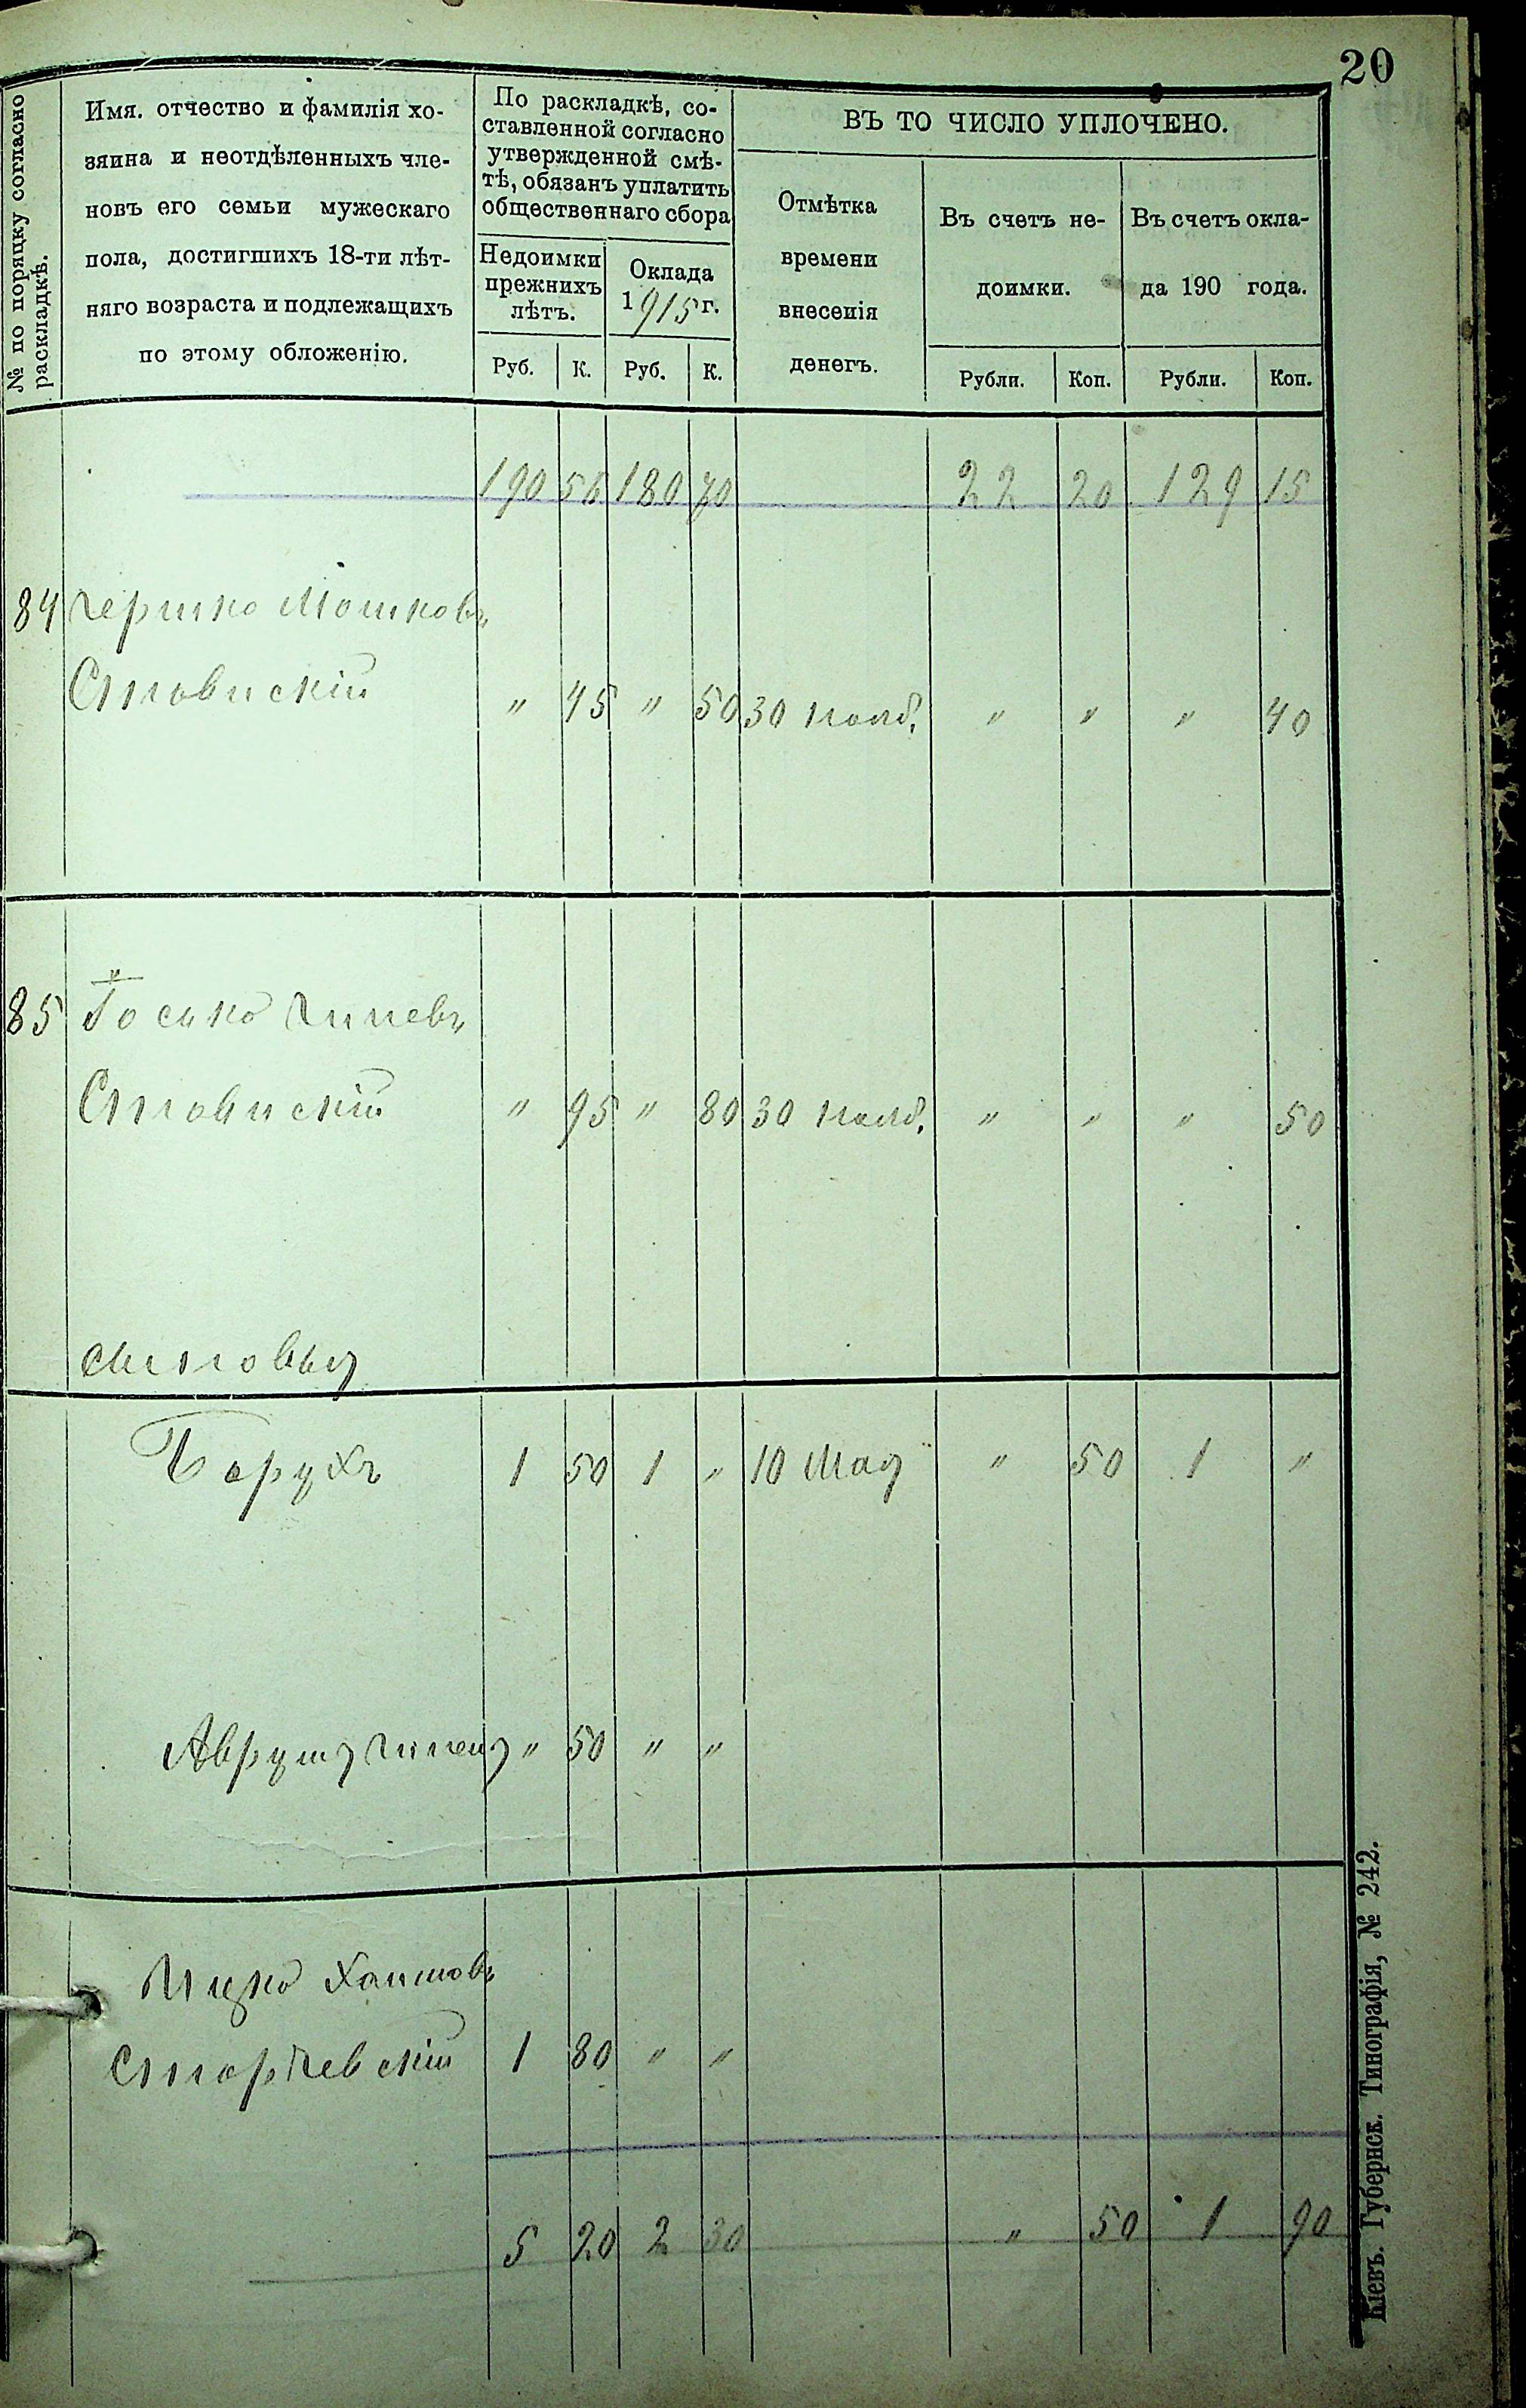 20
№ по порядку согласно раскладкѣ.
Имя. отчество и фамилія хо-
зяина и неотдѣленныхъ чле-
новъ его семьи мужескаго
пола, достигшихъ 18-ти лѣт-
няго возраста и подлежащихъ
по этому обложенію.
По раскладкѣ, со-
ставленной согласно
утвержденной смѣ-
тѣ, обязанъ уплатить
общественнаго сбора
Недоимки
прежнихъ
лѣтъ.
Оклада
1915 г.
Руб. К. Руб. К.
ВЪ ТО ЧИСЛО УПЛОЧЕНО.
Отмѣтка
времени
внесенія
денегъ.
Въ счетъ не-
доимки.
Въ счетъ окла-
да 190 года.
Рубли. Коп. Рубли. Коп.
190 56 180 70 22 20 129 15
84 Гершко Мошковъ
" 45 " 50 30 " " " 40
85 Іосько
" 95 " 80 30 " " " 50
сыновья
Борухъ 1 50 1 " 10 Мая " 50 1 "
" 50 " "
Ицко Хаимовъ
1 80 " "
5 20 2 30 " 50 1 90
Кіевъ. Губернск. Типографія, № 242.